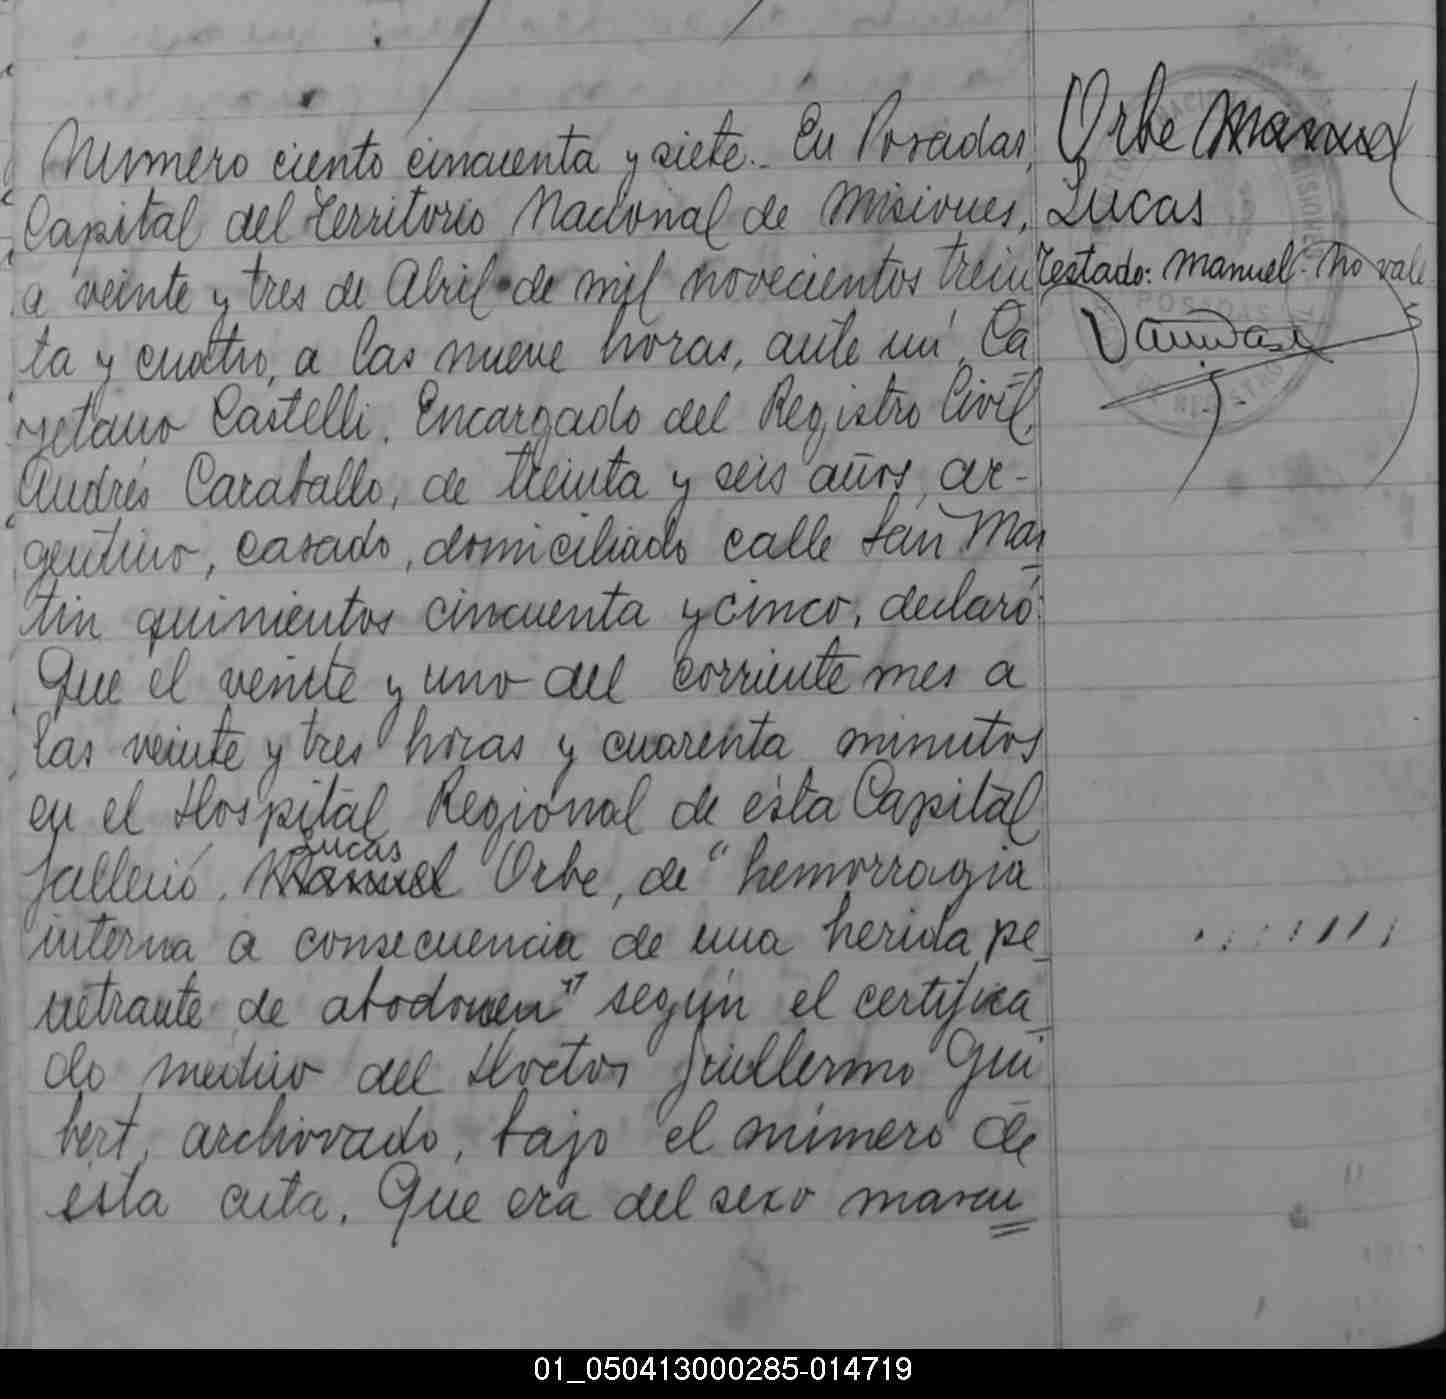 Numero ciento cincuenta y siete. En Posadas,
Capital del Territorio Nacional de Misiones,
a veinte y tres de Abril de mil novecientos trein
ta y cuatro, a las nueve horas, ante mi, Ca
yetano Castelli, Encargado del Registro Civil,
Andrés Caraballo, de treinta y seis años, ar-
gentino, casado, domiciliado calle San Mar
tin quinientos cincuenta y cinco, declaró:
Que el veinte y uno del corriente mes a
las veinte y tres horas y cuarenta minutos
en el Hospital Regional de esta Capital
Lucas
falleció, Manuel Orbe, de "hemorragia
interna a consecuencia de una herida pe
netrante de abdomen" según el certifica
do médico del Doctor Guillermo Gui
bert, archivado, bajo el número de
esta acta. Que era del sexo mascu
Orbe Manuel
Lucas
Testado: Manuel. No vale
POSADAS
REGISTRO
01_050413000285-014719